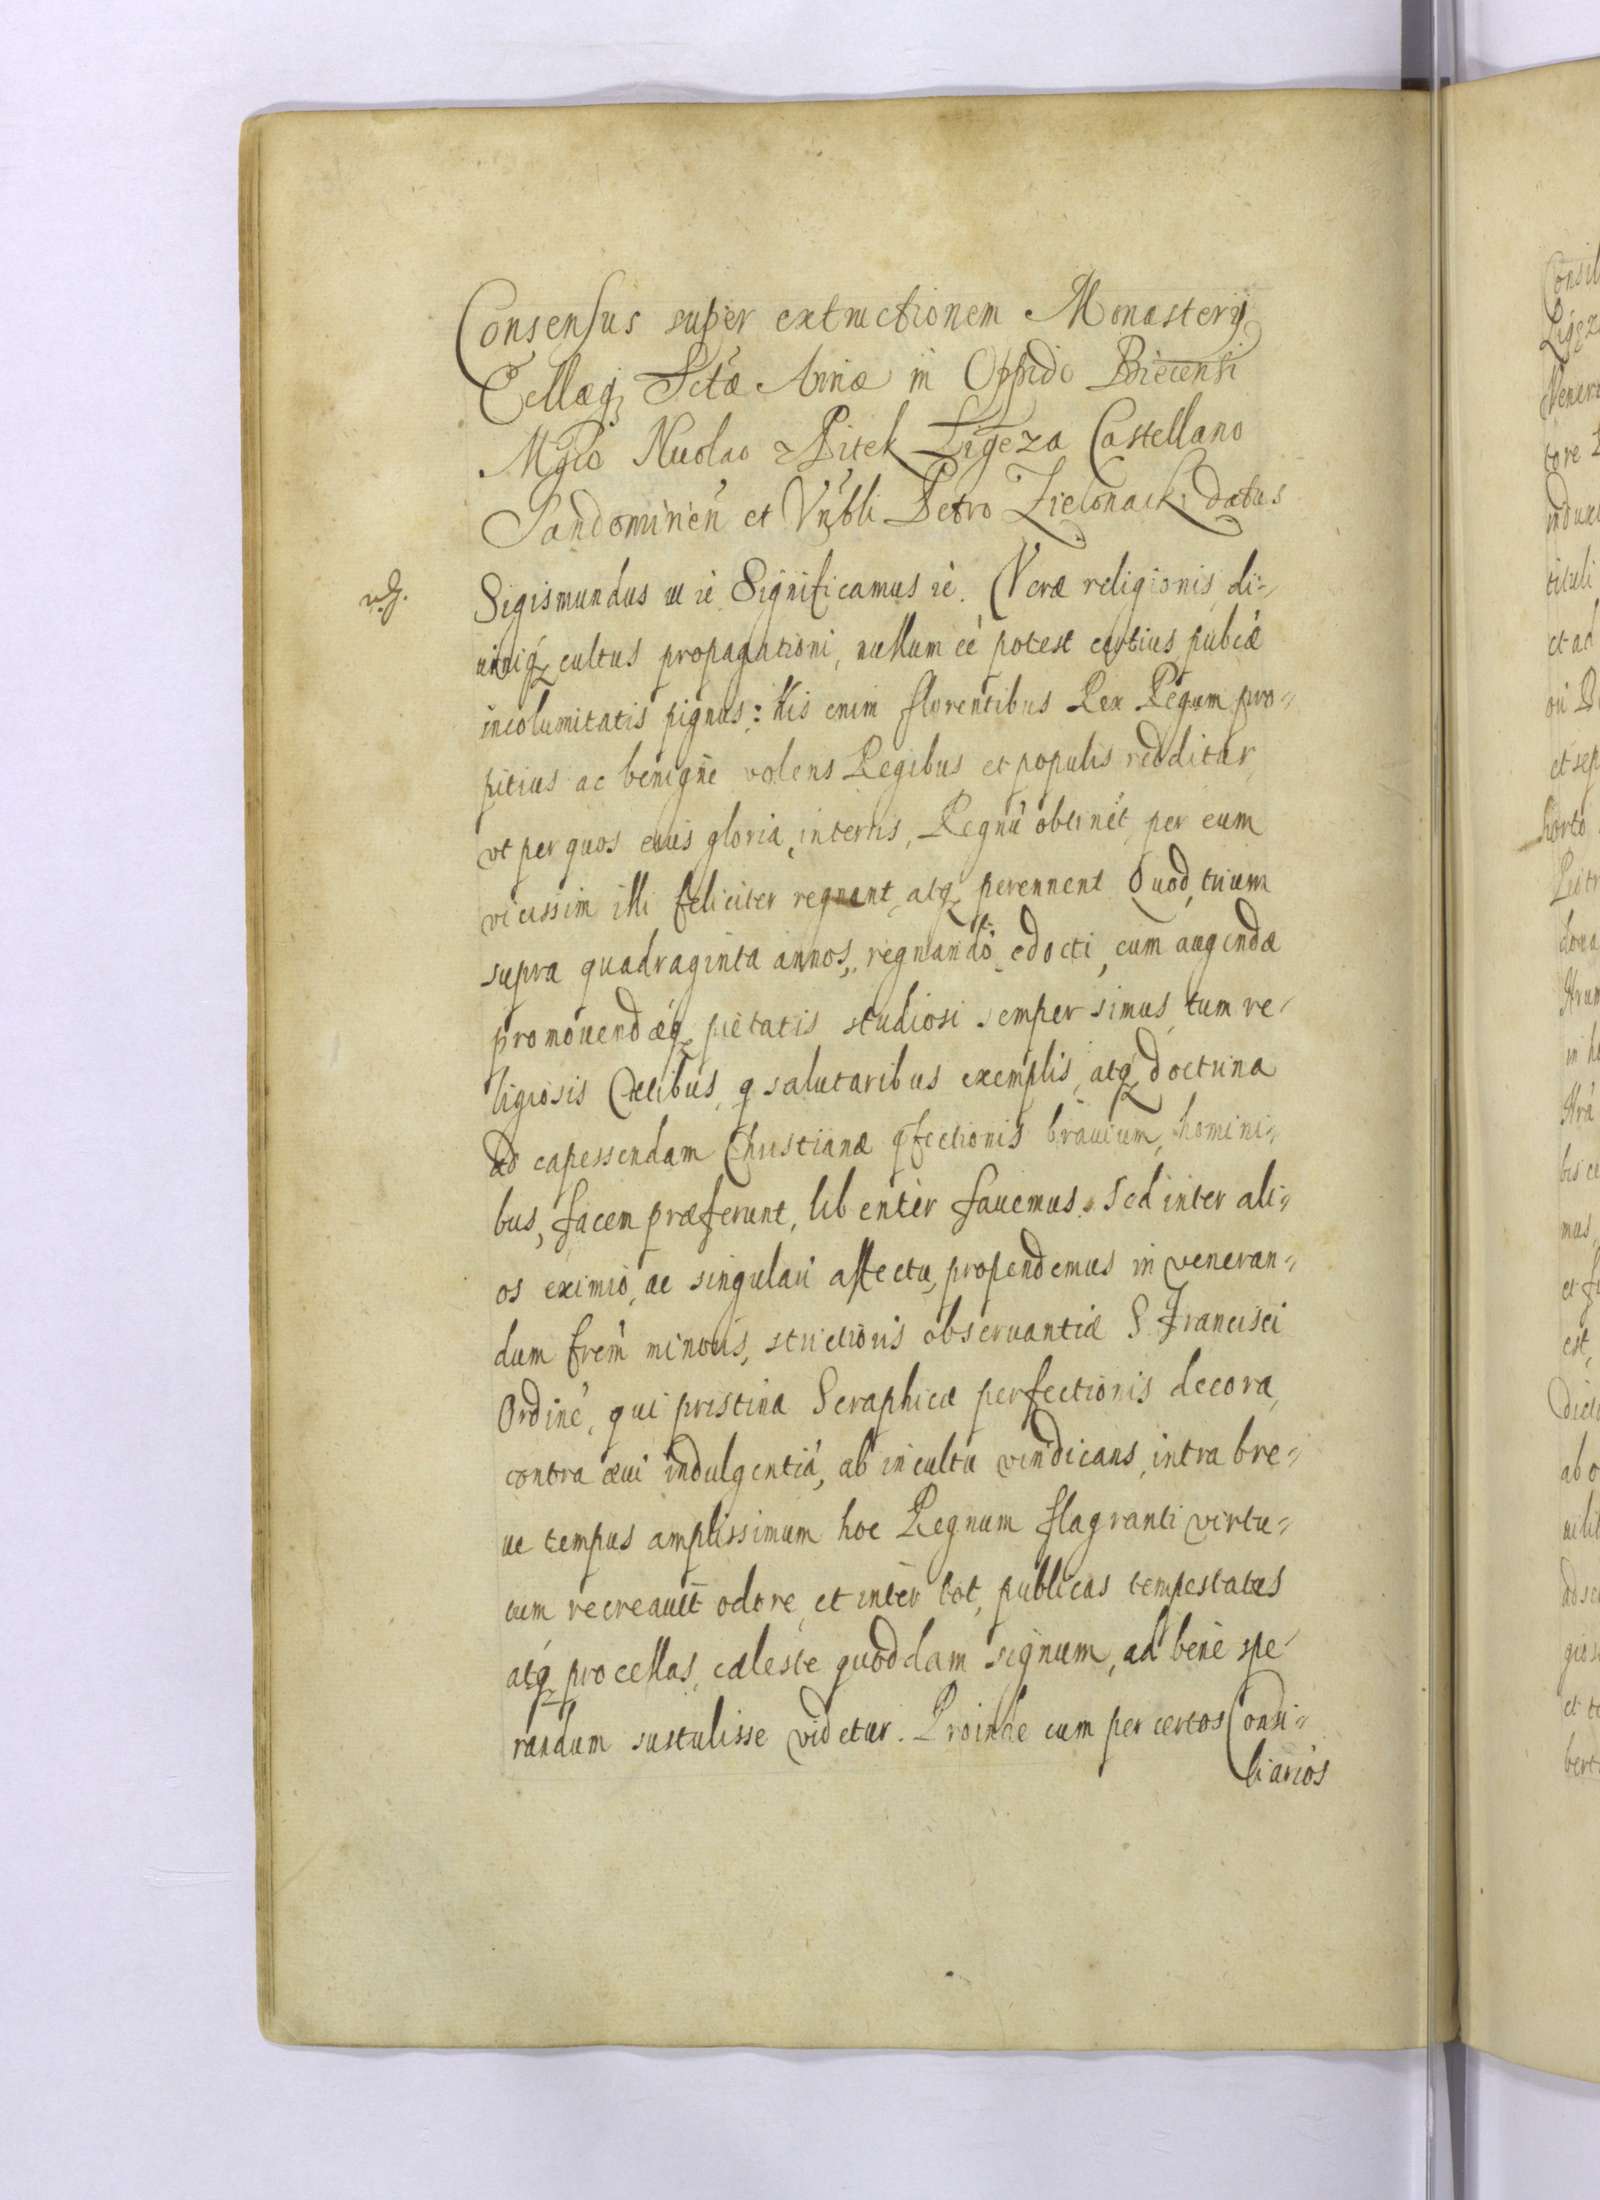 Consensus super extructionem Monasterij
Cellaeq₃ Sctae Annae in Oppido Biecensi
Mgco Nicolao Spitek Ligęza Castellano
Sandomirien̄ et Vn̄bli Petro Zielonacki datus
Sigismundus III ic̄ Significamus ic̄. Verae religionis di-
uiniq₃ cultus propagationi, nullum ēe potest certius pubcae
incolumitatis pignus: His enim florentibus Rex Regum pro-
pitius ac benigne volens Regibus et populis redditur,
vt per quos eius gloria, in terris, Regnū obtinet, per eum
vicissim illi feliciter regnent, atq₃ perennent. Quod, cum
supra quadraginta annos, regnando edocti, cum augendae
promouendaeq₃ pietatis studiosi semper simus, tum re-
ligiosis Caelibus, q salutaribus exemplis, atq₃ doctrina
ad capessendam Christianae pfectionis brauium, homini-
bus, facem praeferunt, libenter fauemus. Sed inter ali-
os eximio, ac singulari affectu, propendemus in veneran-
dum frēm minoris, strictioris obseruantiae S. Francisci
Ordinē, qui pristina Seraphicae perfectionis decora,
contra aeui indulgentiā, ab incultu vindicans, intra bre-
ue tempus amplissimum hoc Regnum flagranti virtu-
tum recreauit odore, et inter tot, publicas tempestates
atq₃ procellas, caeleste quoddam signum, ad bene spe-
randum sustulisse videtur. Proinde cum per certos Consi-
liarios